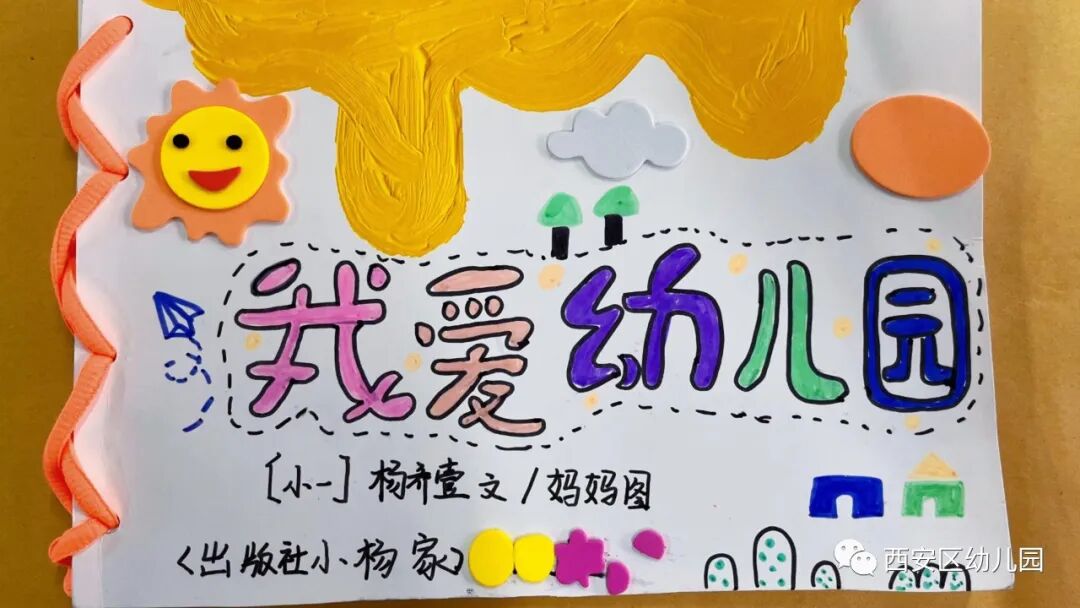 我爱幼儿园
[小一]杨齐壹文/妈妈图
<出版社小杨家>
西安区幼儿园